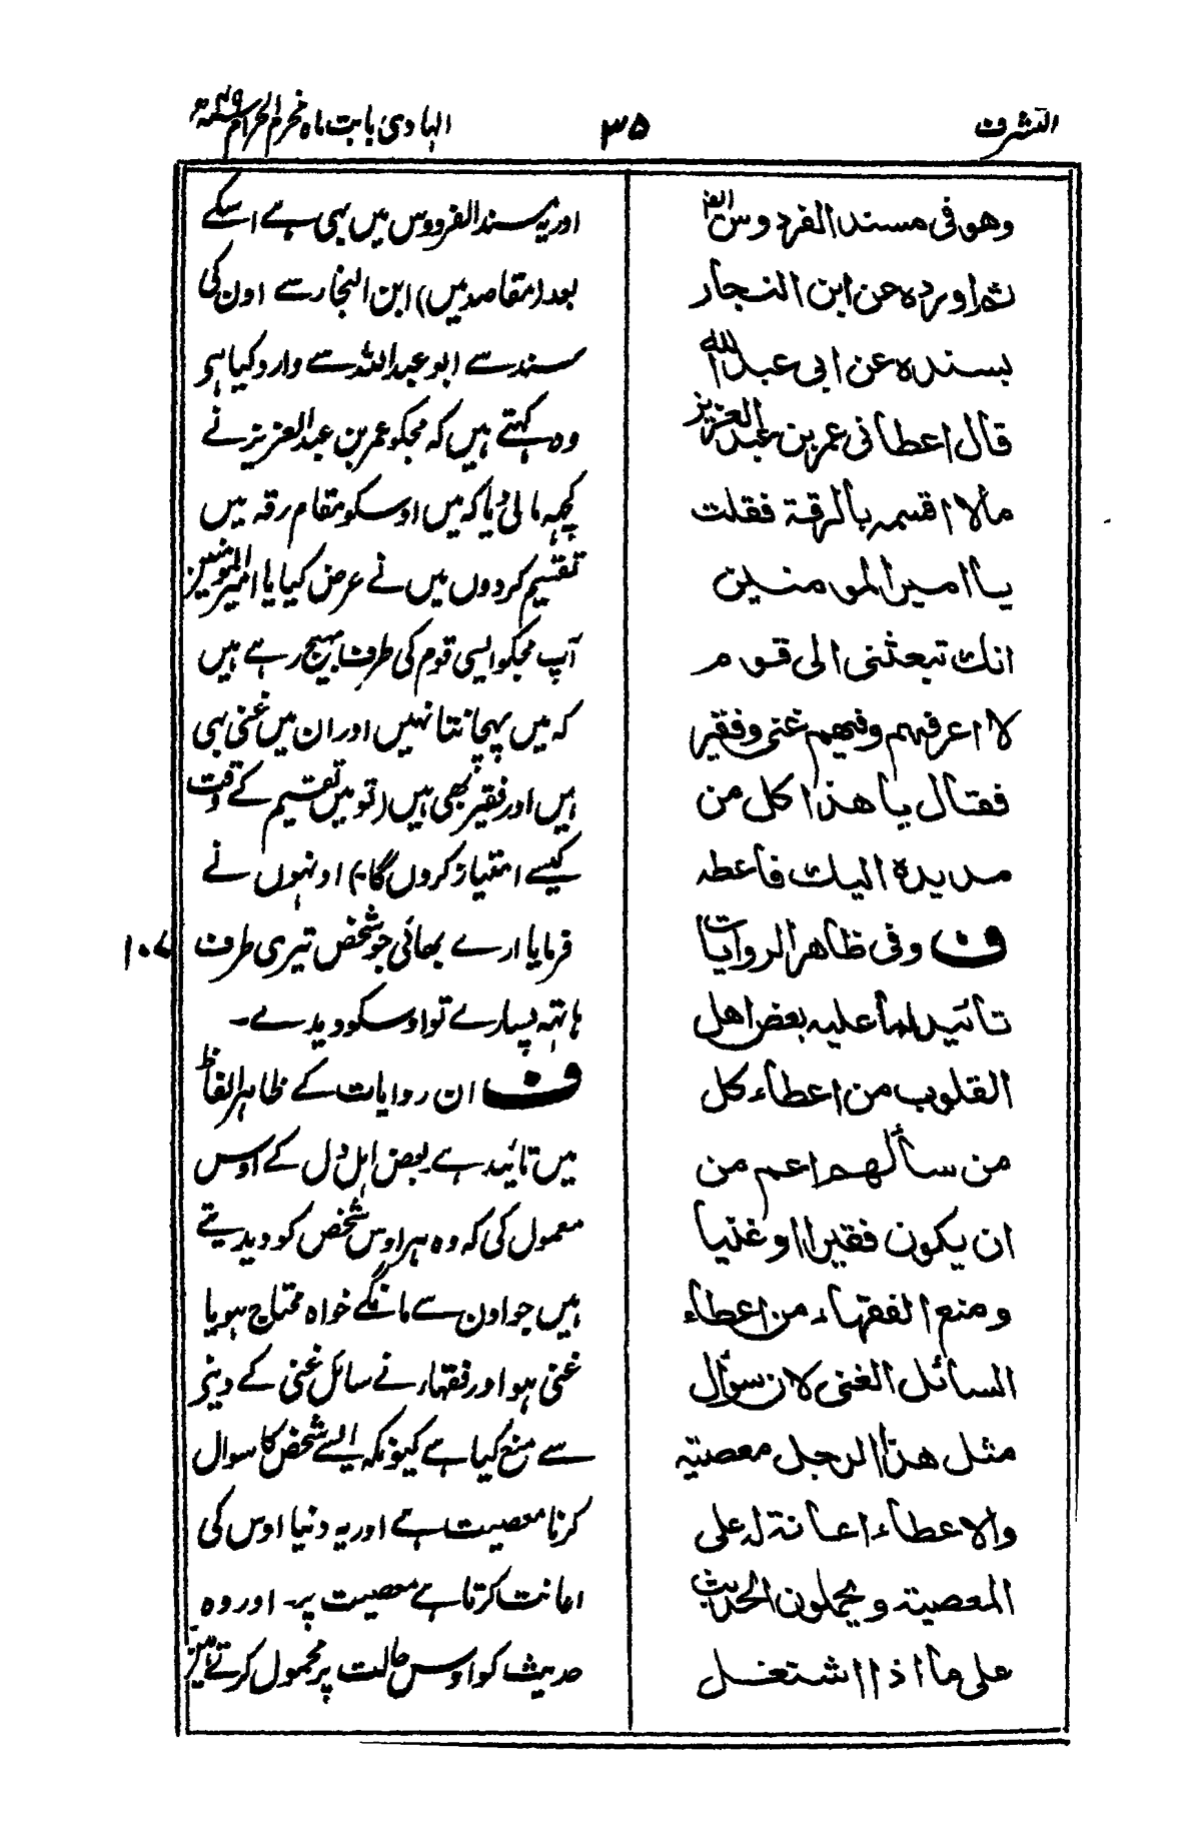 التشرف
۳۵
الہادی بابت ماہ محرم الحرام ۴۹ھ
وهو فى مسند الفردوس الخ
ثم اورده عن ابن النجار
بسنده عن ابى عبد الله
قال اعطانى عمر بن عبد العزيز
مالا اقسمه بالرقة فقلت
يا امير المومنين
انك تبعثنى الى قوم
لا اعرفهم وفيهم غنى وفقير
فقال يا هذا كل من
مد يده اليك فاعطه
ف وفى ظاهر الروايات
تائيد لما عليه بعض اهل
القلوب من اعطاء كل
من سألهم اعم من
ان يكون فقيرا او غنيا
ومنع الفقهاء من اعطاء
السائل الغنى لان سوال
مثل هذا الرجل معصية
والاعطاء اعانة له على
المعصية ويحملون الحديث
على ما اذا اشتغل
اور یہ مسند الفردوس میں بہی ہے اسکے
بعد (مقاصد میں) ابن النجار سے اون کی
سند سے ابو عبد اللہ سے وارد کیا ہی
وہ کہتے ہیں کہ مجکو عمر بن عبد العزیز نے
کچہہ مال دیا کہ میں اوسکو مقام رقہ میں
تقسیم کردوں میں نے عرض کیا یا امیر المومنین
آپ مجکو ایسی قوم کی طرف بہیج رہے ہیں
کہ میں پہچانتا نہیں اور ان میں غنی بہی
ہیں اور فقیر بھی ہیں (تو میں تقسیم کے وقت
کیسے امتیاز کروں گا) اونہوں نے
فرمایا ارے بھائی جو شخص تیری طرف
۱۰۷
ہاتہہ پسارے تو اوسکو دیدے۔
ف ان روایات کے ظاہر الفاظ
میں تائید ہے بعض اہل دل کے اوس
معمول کی کہ وہ ہر اوس شخص کو دیدیتے
ہیں جو اون سے مانگے خواہ محتاج ہو یا
غنی ہو اور فقہاء نے سائل غنی کے دینے
سے منع کیا ہے کیونکہ ایسے شخص کا سوال
کرنا معصیت ہے اور یہ دنیا اوس کی
اعانت کرتا ہے معصیت پر۔ اور وہ
حدیث کو اوس حالت پر محمول کرتے ہیں